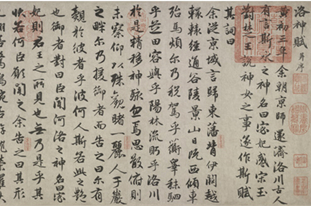 洛神賦 并序
黃初三年余朝京師還濟洛川古人
有言斯水之神名曰宓妃感宋玉
對楚王說神女之事遂作斯賦
其詞曰
余從京城言歸東藩背伊闕越
轘轅經通谷陵景山日既西傾車
殆馬煩爾乃稅駕乎蘅皋秣駟
乎芝田容與乎陽林流眄乎洛川
於是精移神駭忽焉思散俯則
未察仰以殊觀睹一麗人于巖
之畔尔乃援御者而告之曰尔有
覿於彼者乎彼何人斯若此之艷
也御者對曰臣聞河洛之神名曰宓
妃則君王之所見也無乃是乎其
狀若何臣願聞之余告之曰其形